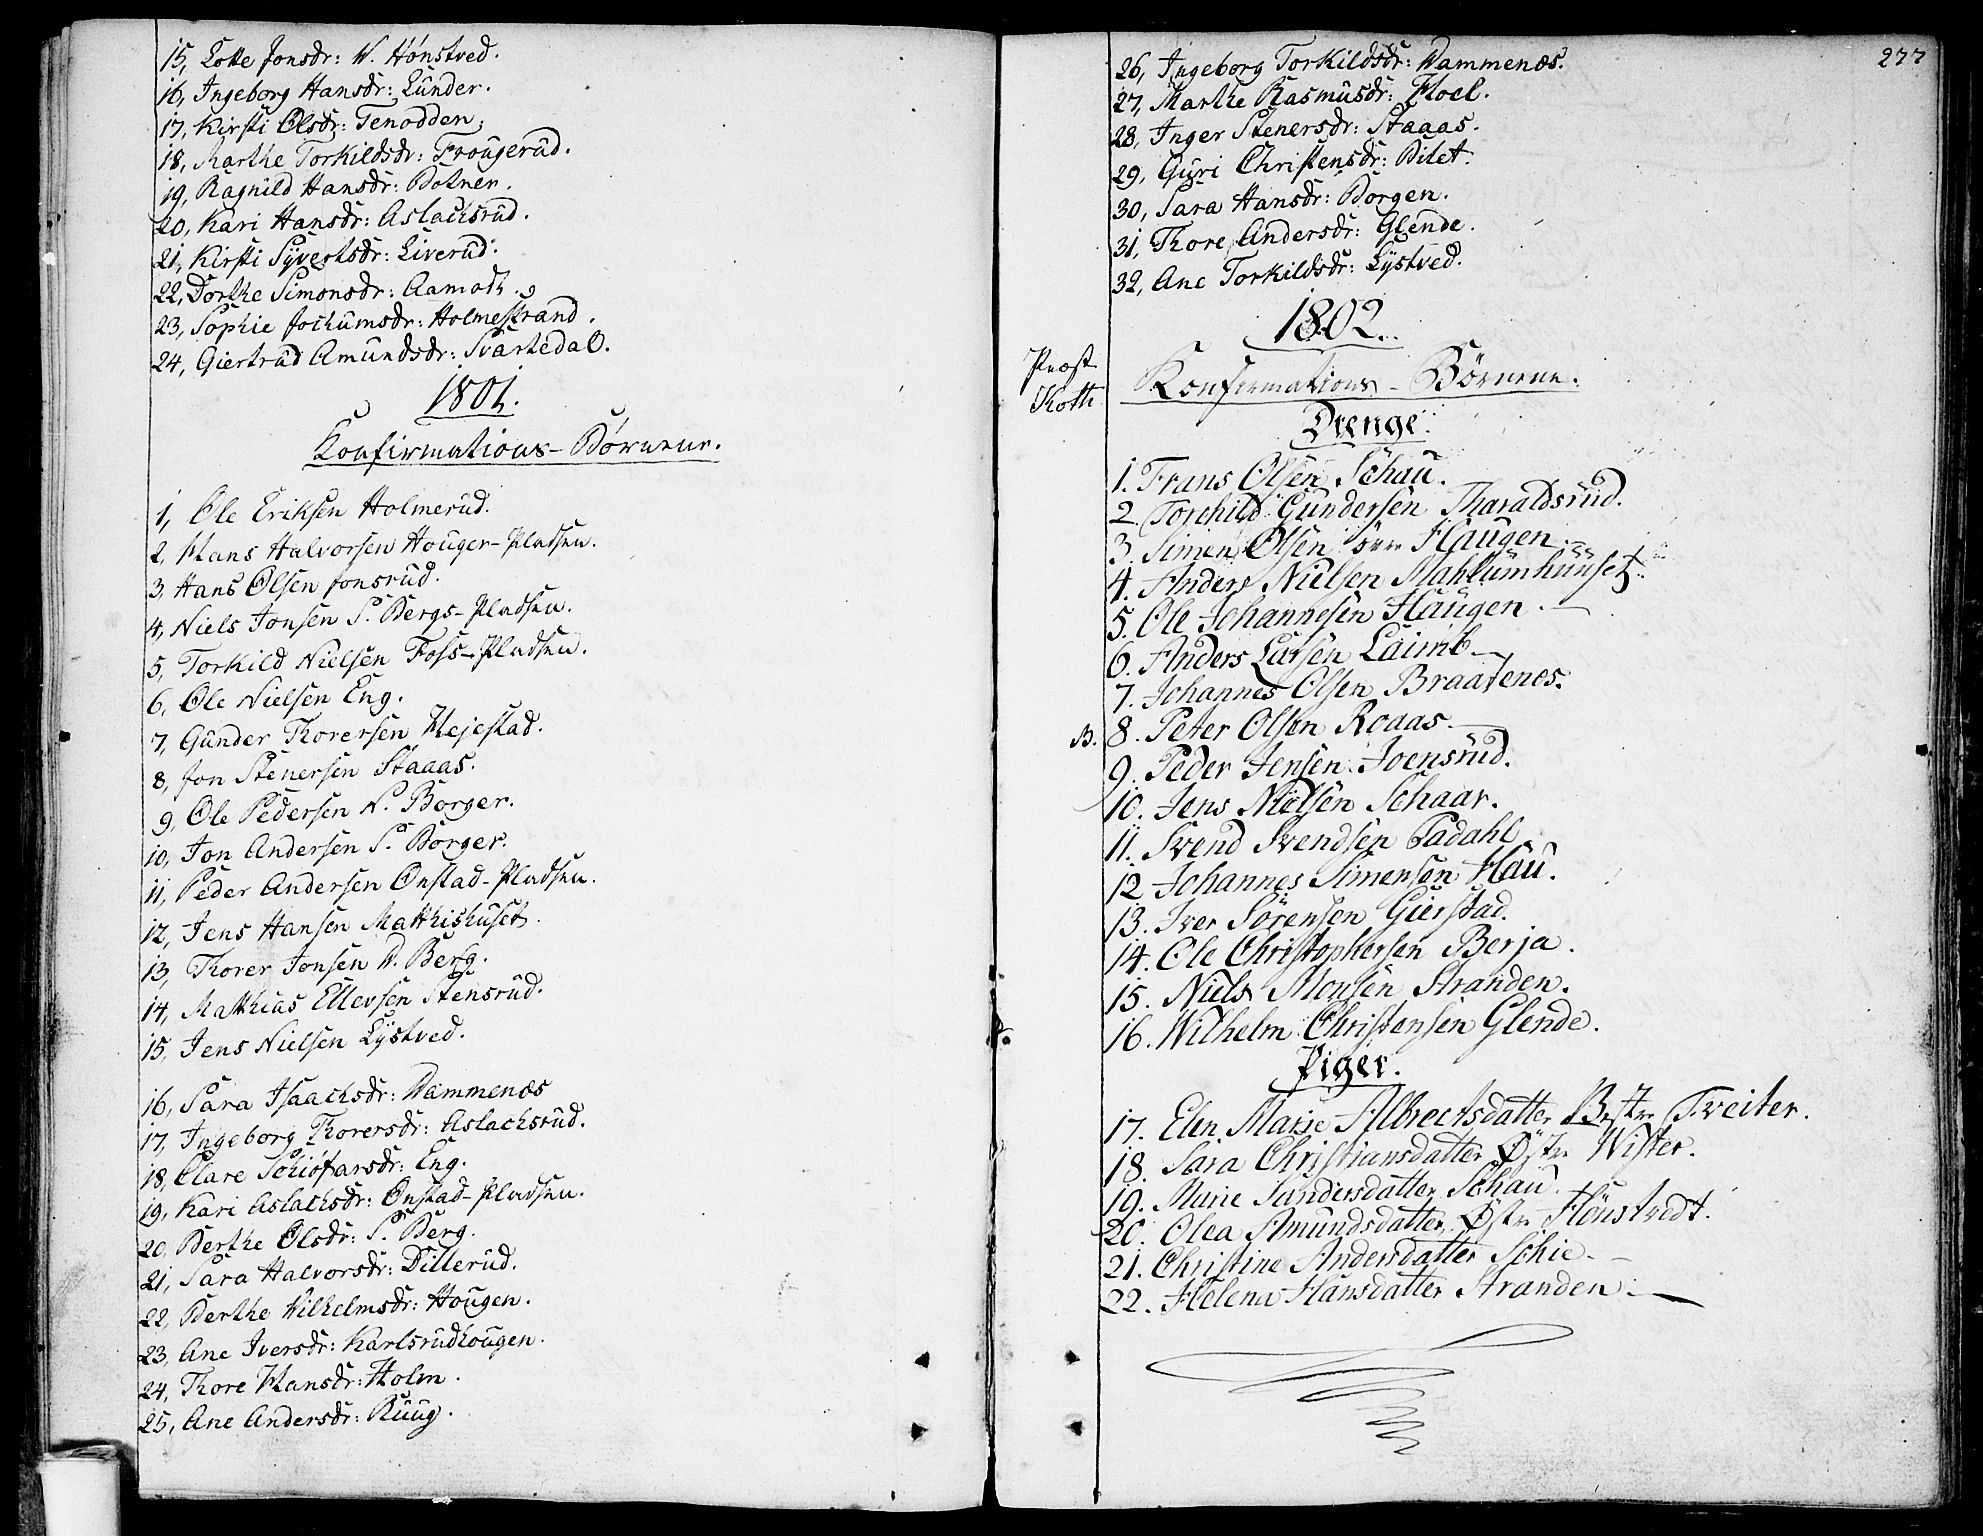 15, Lotte Jonsdr: W. Hönstved.
16, Ingeborg Hansdr: Lunder.
17, Kirsti Olsdr: Tenodden.
18, Marthe Torkildsdr: Frougerud.
19, Ragnild Hansdr: Botner.
20, Kari Hansdr: Aslachsrud.
21, Kirsti Syvertsdr: Liverud.
22, Dorthe Simonsdr: Aamodt.
23, Sophie Jochumsdr: Holmestrand.
24, Giertrud Amundsdr: Svartedal.
1801.
Konfirmations-Börnene.
1, Ole Eriksen Holmerud.
2, Hans Halvorsen Houger-Pladsen.
3, Hans Olsen Jonsrud.
4, Niels Jonsen S. Bergs-Pladsen.
5, Torkild Nielsen Foss-Pladsen.
6, Ole Nielsen Eng.
7, Gunder Thorersen Hejestad.
8, Jon Stenersen Staaas.
9, Ole Pedersen N. Borger.
10, Jon Andersen S. Borger.
11, Peder Andersen Onstad-Pladsen.
12, Jens Hansen Matthishuset.
13, Thorer Jonsen W. Berg.
14, Matthias Ellevsen Stensrud.
15, Jens Nielsen Lystved.
16, Sara Isaachsdr: Wammenæs
17, Ingeborg Thorersdr: Aslachsrud.
18, Clare Schiöfarsdr: Eng.
19, Kari Aslachsdr: Onstad-Pladsen.
20, Berthe Olsdr: S. Berg.
21, Sara Halvorsdr: Dillerud.
22, Berthe Wilhelmsdr: Hougen.
23, Ane Iversdr: Karlsrudhougen.
24, Thore Hansdr: Holm.
25, Ane Andersdr: Ruug.
277
26, Ingeborg Torkildsdr: Wammenæs.
27, Marthe Rasmusdr: Hoel.
28, Inger Stenersdr: Staaas.
29, Guri Christensdr: Bilet.
30, Sara Hansdr: Borgen.
31, Thore Andersdr: Glende.
32, Ane Torkildsdr: Lystved.
1802.
Præst
Koth
Konfirmations-Börnene.
Drenge.
1. Frans Olsen Schau.
2. Torchild Gundersen Tharaldsrud.
3. Simen Olsen övre Haugen
4. Anders Nielsen Mahlumhuuset.
5. Ole Johannesen Haugen.
6. Anders Larsen Laimb
7. Johannes Olsen Braatenes.
8. Peter Olsen Roaas
9. Peder Jensen Joensrud.
10. Jens Nielsen Schaar.
11. Svend Svendsen Fadahl
12. Johannes Simensen Hau.
13. Iver Sörensen Gierstad.
14. Ole Christophersen Berja.
15. Niels Monsen Stranden.
16. Wilhelm Christensen Glende.
Piger.
17. Elen Marie Albrectsdatter Tveiter.
18. Sara Christiansdatter Östr Wister.
19. Marie Sandersdatter Schau
20. Olea Amundsdatter Östr Hönstvedt.
21. Christine Andersdatter Schie
22. Helena Hansdatter Stranden